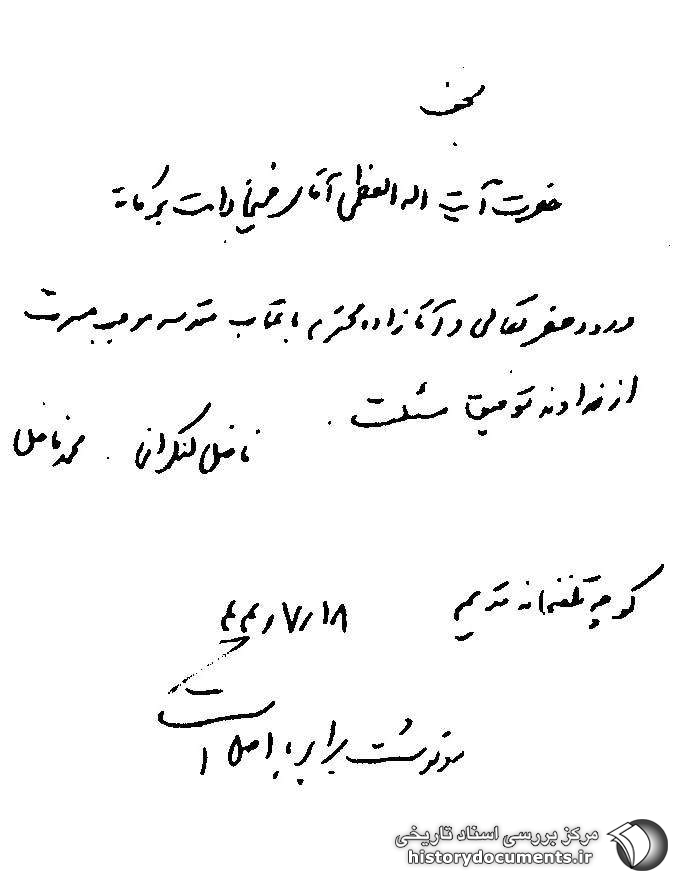 نجف
حضرت آیت اله العظمی آقای خمینی دامت برکاته
ورود حضرتعالی و آقازاده محترم باعتاب مقدسه موجب مسرت
از خداوند توفیق مسئلت
فاضل لنکرانی . محمد فاضل
کوچه تلفنخانه قدیم
۴۴/۷/۱۸
رونوشت برابر با اصل است
مرکز بررسی اسناد تاریخی
historydocuments.ir